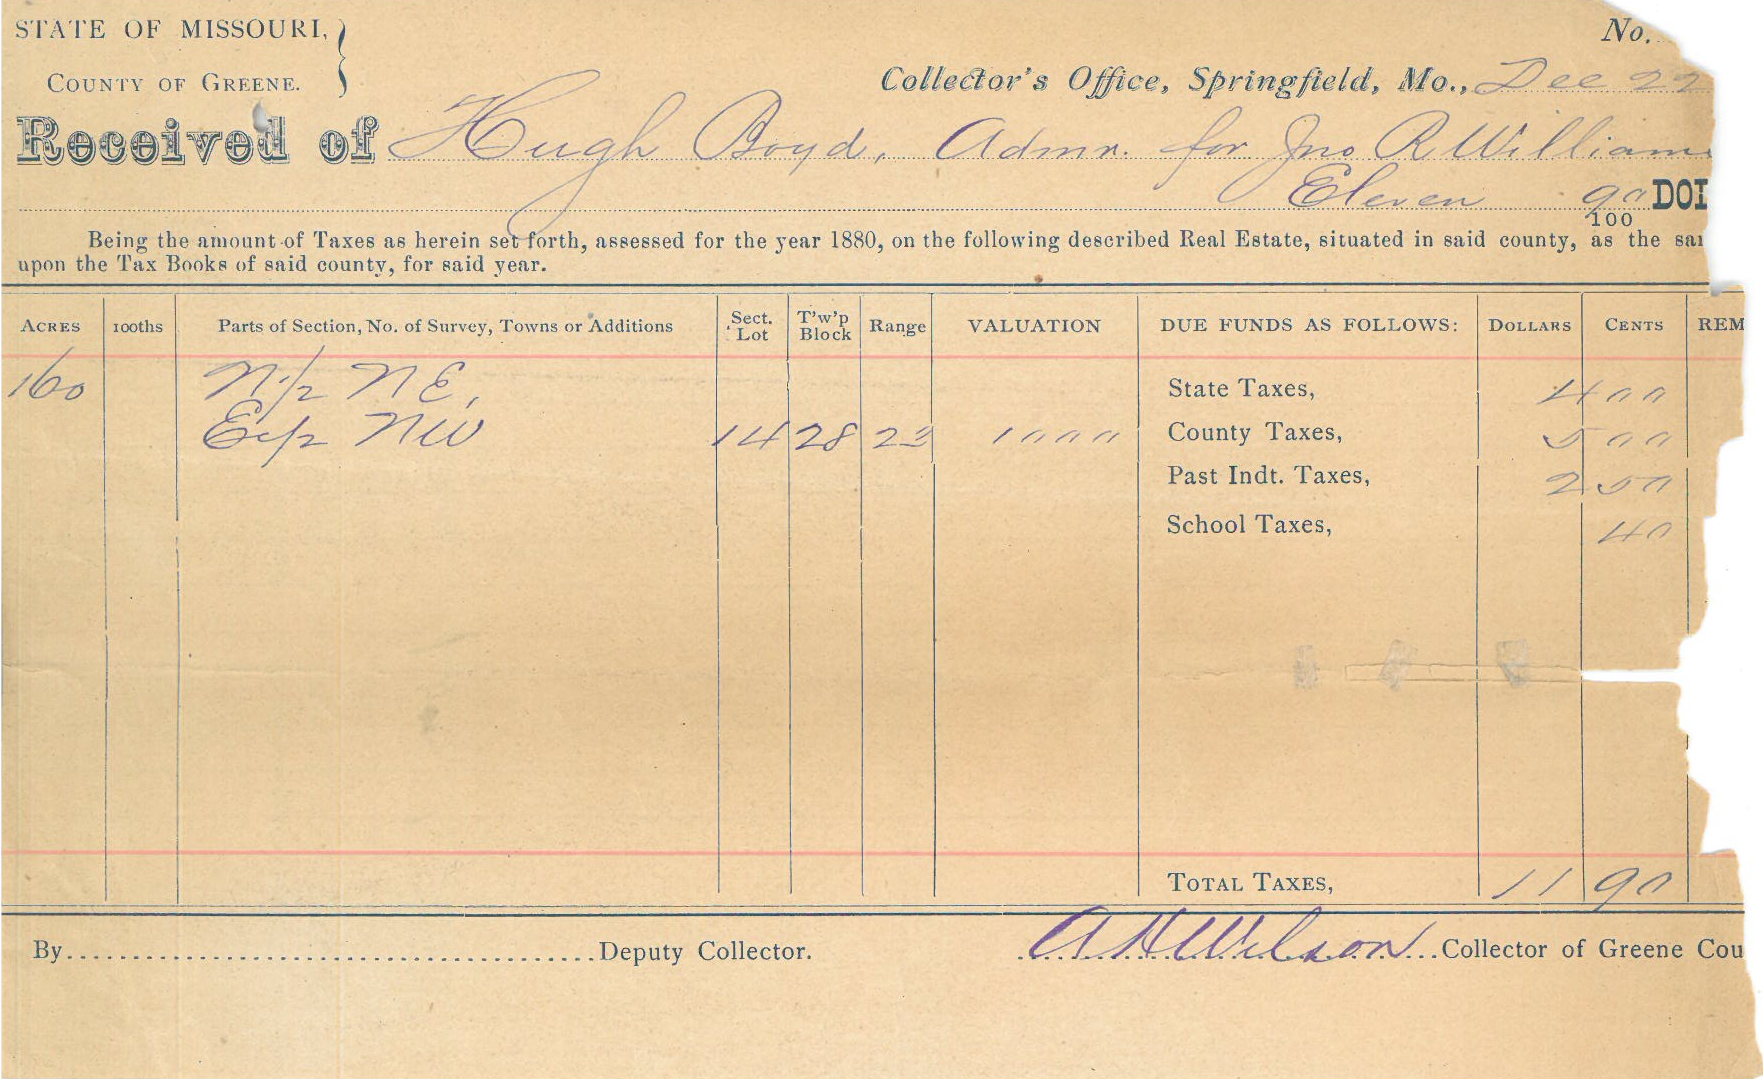 STATE OF MISSOURI,
COUNTY OF GREENE.
No.
Collector's Office, Springfield, Mo., Dec 22
Received of Hugh Boyd, Admr. for Jno R William
Eleven 90/100 DOL
Being the amount of Taxes as herein set forth, assessed for the year 1880, on the following described Real Estate, situated in said county, as the sa
upon the Tax Books of said county, for said year.
ACRES 100ths Parts of Section, No. of Survey, Towns or Additions Sect. Lot T'w'p Block Range VALUATION DUE FUNDS AS FOLLOWS: DOLLARS CENTS REM
160 N ½ NE, State Taxes, 4 00
E ½ NW 14 28 23 1000 County Taxes, 5 00
Past Indt. Taxes, 2 50
School Taxes, 40
TOTAL TAXES, 11 90
By Deputy Collector. A H Wilson Collector of Greene Cou